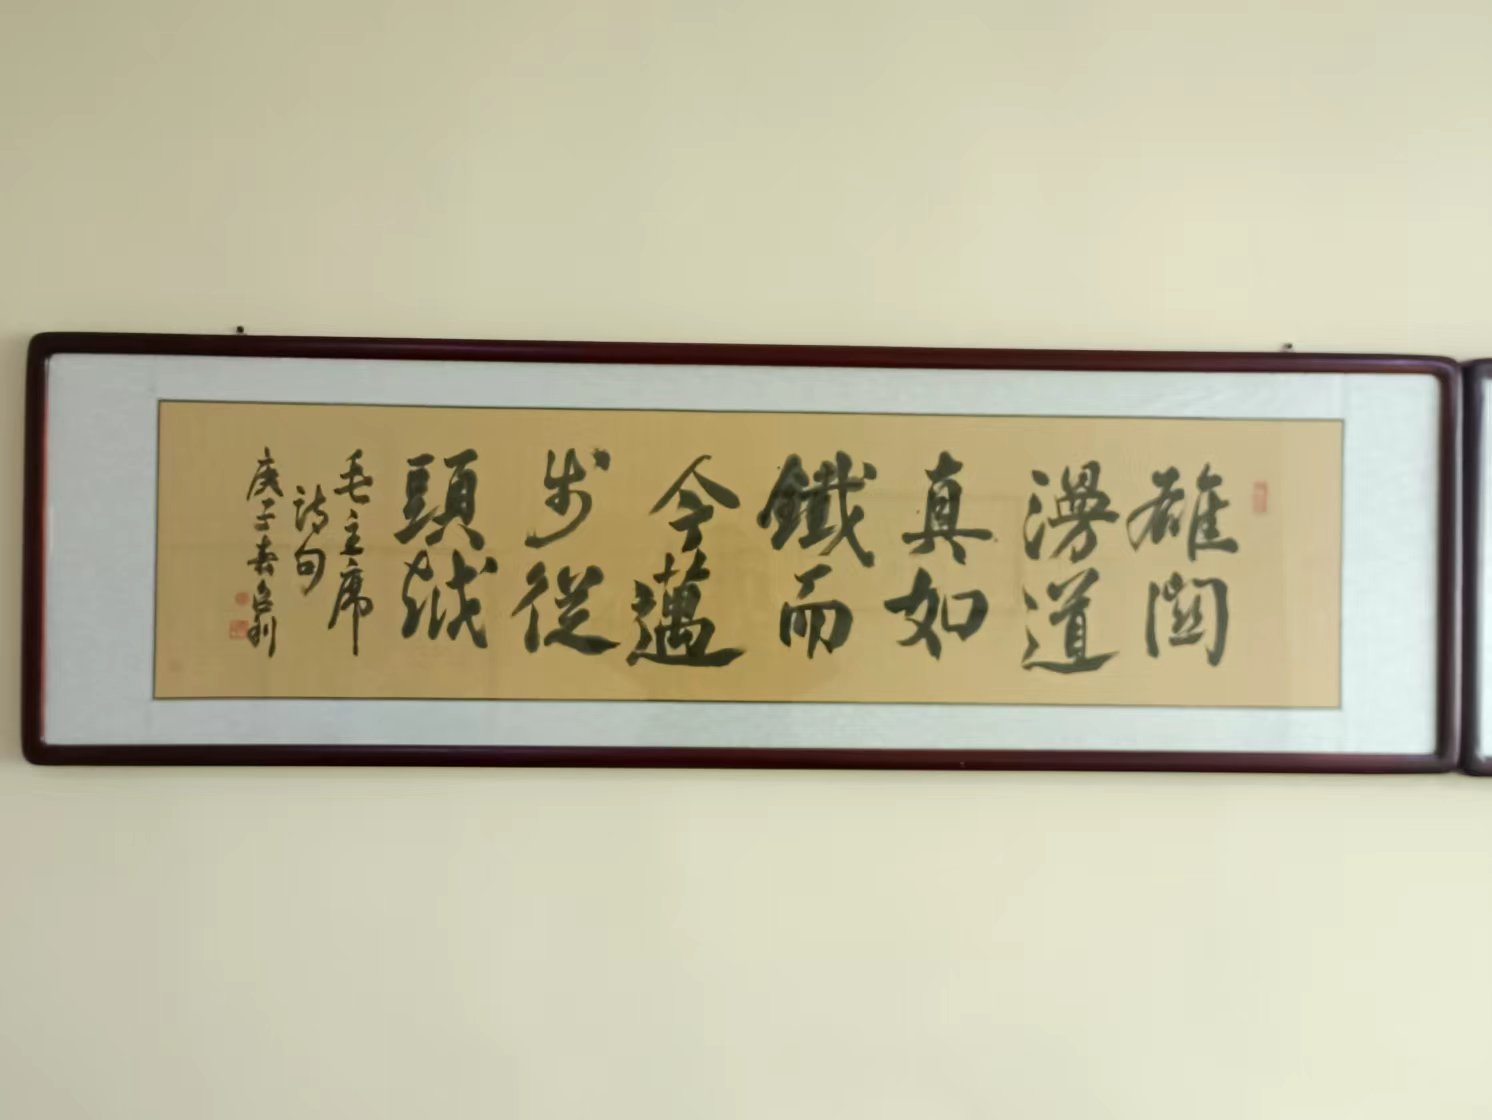 雄關
漫道
真如
鐵而
今邁
步從
頭越
毛主席
詩句
庚子春